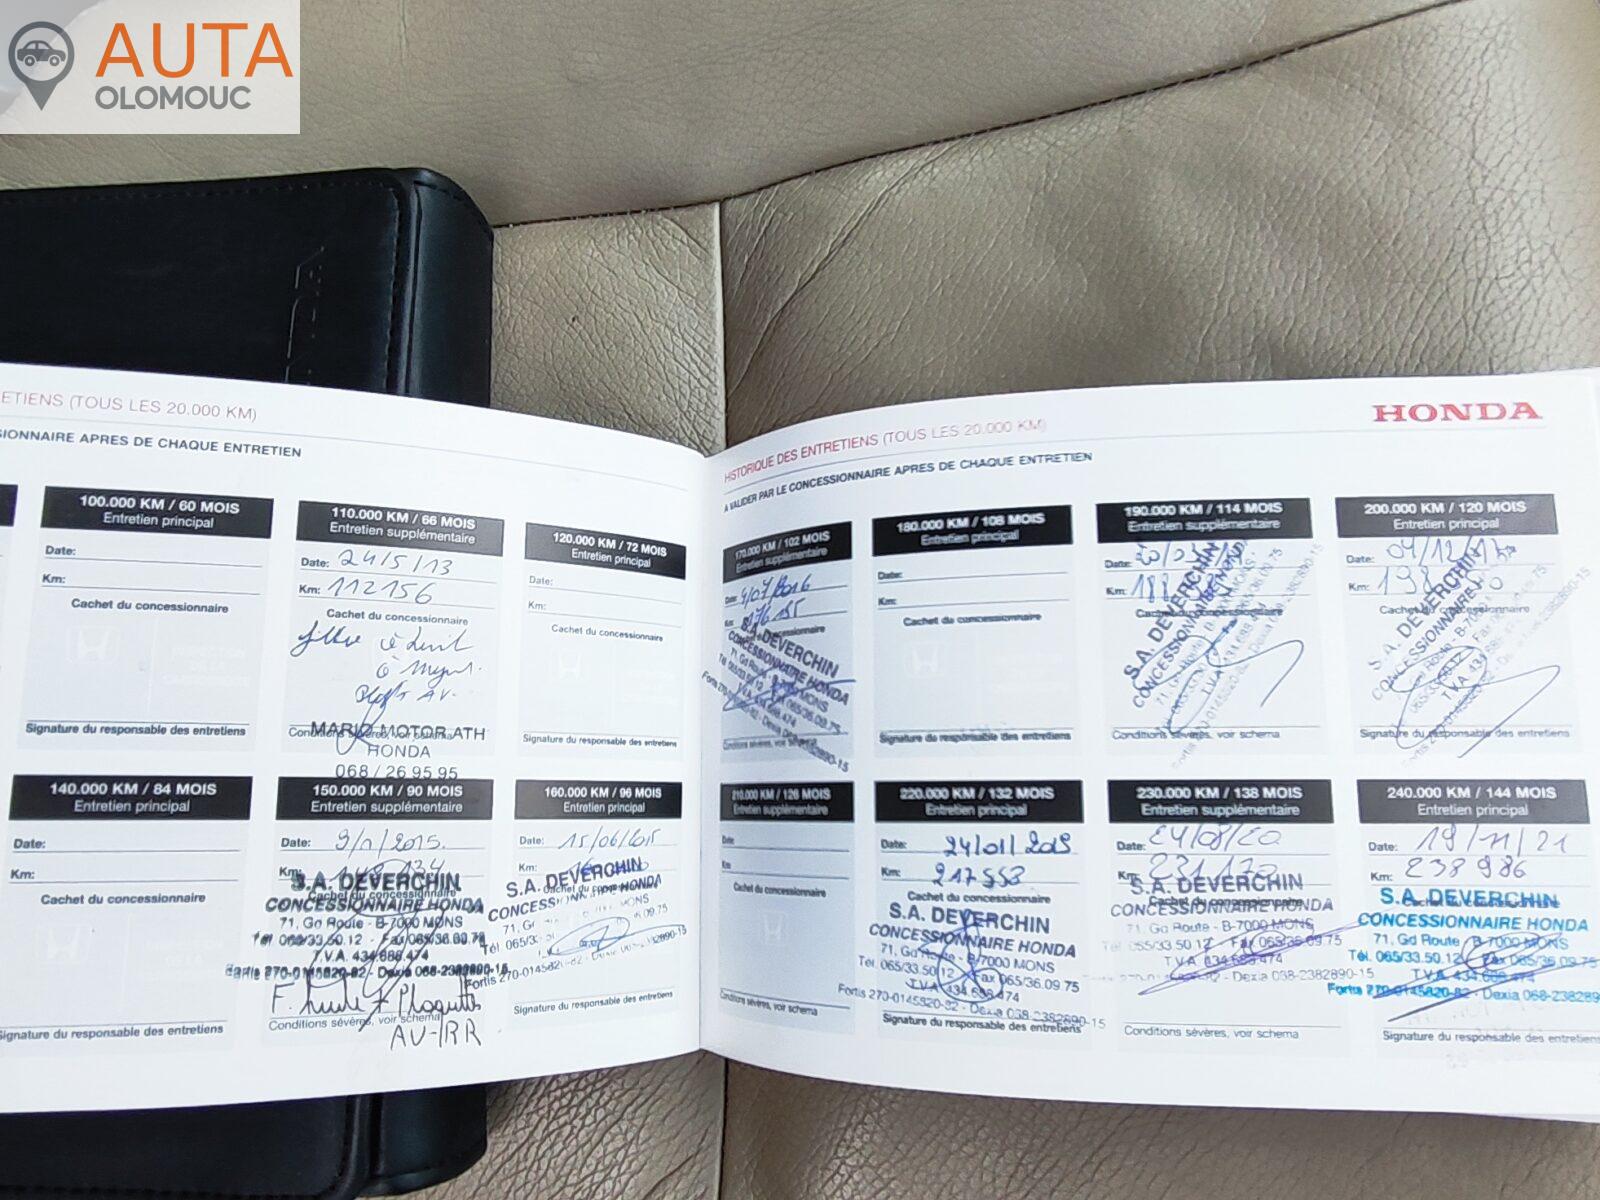 AUTA
OLOMOUC
ETIENS (TOUS LES 20.000 KM)
SIONNAIRE APRES DE CHAQUE ENTRETIEN
100.000 KM / 60 MOIS
Entretien principal
Date:
Km:
Cachet du concessionnaire
Signature du responsable des entretiens
110.000 KM / 66 MOIS
Entretien supplémentaire
Date: 24/5/13
Km: 112156
Cachet du concessionnaire
MARIO MOTOR ATH
HONDA
068 / 26 95 95
120.000 KM / 72 MOIS
Entretien principal
Date:
Km:
Cachet du concessionnaire
Signature du responsable des entretiens
140.000 KM / 84 MOIS
Entretien principal
Date:
Km:
Cachet du concessionnaire
Signature du responsable des entretiens
150.000 KM / 90 MOIS
Entretien supplémentaire
Date: 9/1/2015.
Km:
S.A. DEVERCHIN
CONCESSIONNAIRE HONDA
71, Gd Route - B-7000 MONS
Tél. 065/33.50.12 - Fax 065/36.09.75
T.V.A. 434.686.474
Fortis 270-0145820-82 - Dexia 068-2382890-15
Conditions sévères, voir schema
AV-RR
160.000 KM / 96 MOIS
Entretien principal
Date: 15/06/2015
Km:
S.A. DEVERCHIN
CONCESSIONNAIRE HONDA
Signature du responsable des entretiens
HONDA
HISTORIQUE DES ENTRETIENS (TOUS LES 20.000 KM)
A VALIDER PAR LE CONCESSIONNAIRE APRES DE CHAQUE ENTRETIEN
170.000 KM / 102 MOIS
Entretien supplémentaire
Date: 4/07/2016
Km: 176155
S.A. DEVERCHIN
CONCESSIONNAIRE HONDA
180.000 KM / 108 MOIS
Entretien principal
Date:
Km:
Cachet du concessionnaire
Signature du responsable des entretiens
190.000 KM / 114 MOIS
Entretien supplémentaire
Date:
Km:
S.A. DEVERCHIN
Conditions sévères, voir schema
200.000 KM / 120 MOIS
Entretien principal
Date: 04/12/17
Km:
S.A. DEVERCHIN
CONCESSIONNAIRE
Signature du responsable des entretiens
210.000 KM / 126 MOIS
Entretien supplémentaire
Date
Km
Cachet du concessionnaire
Conditions sévères, voir schema
220.000 KM / 132 MOIS
Entretien principal
Date: 24/01/2019
Km: 217553
Cachet du concessionnaire
S.A. DEVERCHIN
CONCESSIONNAIRE HONDA
71, Gd Route - B-7000 MONS
Tél. 065/33.50.12 - Fax 065/36.09.75
T.V.A. 434.686.474
Fortis 270-0145820-82 - Dexia 068-2382890-15
Signature du responsable des entretiens
230.000 KM / 138 MOIS
Entretien supplémentaire
Date: 24/08/20
Km: 231170
S.A. DEVERCHIN
CONCESSIONNAIRE HONDA
71, Gd Route - B-7000 MONS
Tél. 065/33.50.12 - Fax 065/36.09.75
T.V.A. 434.686.474
Dexia 068-2382890-15
Conditions sévères, voir schema
240.000 KM / 144 MOIS
Entretien principal
Date: 19/11/21
Km: 238986
S.A. DEVERCHIN
CONCESSIONNAIRE HONDA
71, Gd Route - B-7000 MONS
Tél. 065/33.50.12 - Fax 065/36.09.75
T.V.A. 434.686.474
Fortis 270-0145820-82 - Dexia 068-23828
Signature du responsable des entretiens